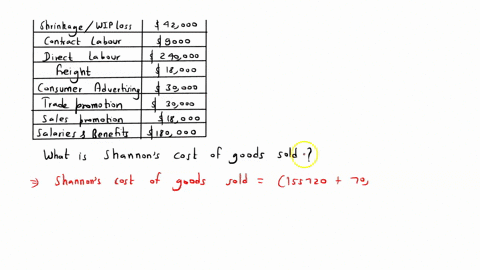 Shrinkage/WIP loss $42,000
Contract Labour $9000
Direct Labour $240,000
freight $18,000
Consumer Advertising $30,000
Trade promotion $30,000
Sales promotion $18,000
Salaries & Benefits $180,000
What is Shannon's cost of goods sold.?
⇒ Shannon's cost of goods sold = (155720 + 70,